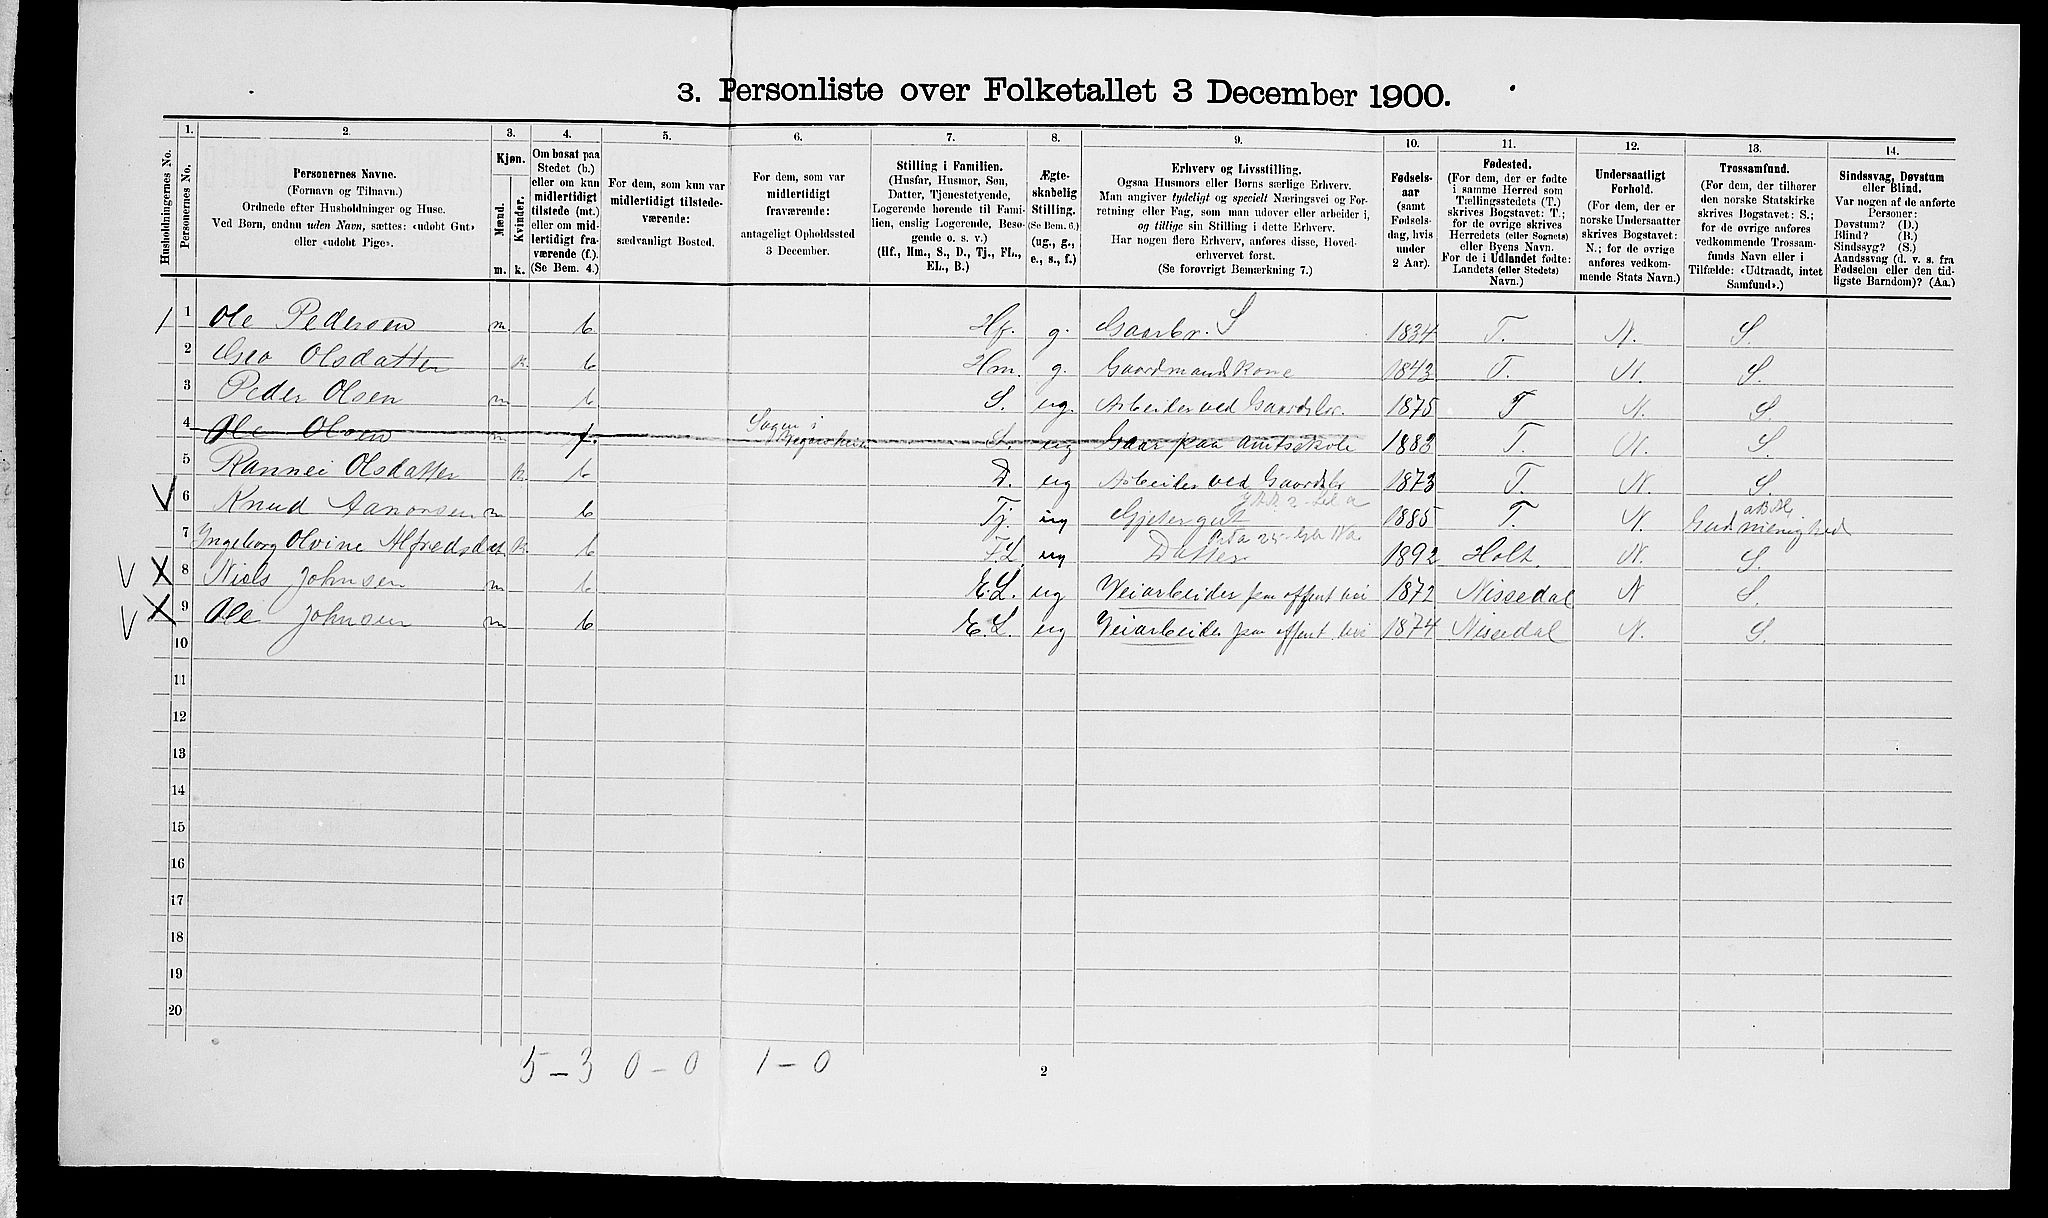 3. Personliste over Folketallet 3 December 1900.
Husholdningernes No.
1. Personernes No.
2. Personernes Navne.
(Fornavn og Tilnavn.)
Ordnede efter Husholdninger og Huse.
Ved Børn, endnu uden Navn, sættes: «udøbt Gut»
eller «udøbt Pige».
3. Kjøn.
Mænd. m.
Kvinder. k.
4. Om bosat paa
Stedet (b.)
eller om kun
midlertidigt
tilstede (mt.)
eller om mid-
lertidigt fra-
værende (f.).
(Se Bem. 4.)
5. For dem, som kun var
midlertidigt tilstede-
værende:
sædvanligt Bosted.
6. For dem, som var
midlertidigt
fraværende:
antageligt Opholdssted
3 December.
7. Stilling i Familien.
(Husfar, Husmor, Søn,
Datter, Tjenestetyende,
Logerende hørende til Fami-
lien, enslig Logerende, Besø-
gende o. s. v.)
(Hf., Hm., S., D., Tj., FL.,
EL., B.)
8. Ægte-
skabelig
Stilling.
(Se Bem. 6.)
(ug., g.,
e., s., f.)
9. Erhverv og Livsstilling.
Ogsaa Husmors eller Børns særlige Erhverv.
Man angiver tydeligt og specielt Næringsvei og For-
retning eller Fag, som man udøver eller arbeider i,
og tillige sin Stilling i dette Erhverv.
Har nogen flere Erhverv, anføres disse, Hoved-
erhvervet først.
(Se forøvrigt Bemærkning 7.)
10. Fødsels-
aar
(samt
Fødsels-
dag, hvis
under
2 Aar).
11. Fødested.
(For dem, der er fødte
i samme Herred som
Tællingsstedets (T.)
skrives Bogstavet: T.;
for de øvrige skrives
Herredets (eller Sognets)
eller Byens Navn.
For de i Udlandet fødte:
Landets (eller Stedets)
Navn.)
12. Undersaatligt
Forhold.
(For dem, der er
norske Undersaatter
skrives Bogstavet:
N.; for de øvrige
anføres vedkom-
mende Stats Navn.)
13. Trossamfund.
(For dem, der tilhører
den norske Statskirke
skrives Bogstavet: S.;
for de øvrige anføres
vedkommende Trossam-
funds Navn eller i
Tilfælde: «Udtraadt, intet
Samfund».)
14. Sindssvag, Døvstum
eller Blind.
Var nogen af de anførte
Personer:
Døvstum? (D.)
Blind? (B.)
Sindssyg? (S.)
Aandssvag (d. v. s. fra
Fødselen eller den tid-
ligste Barndom)? (Aa.)
1 Ole Pedersen m b Hf. g. Gaarbr. S 1834 T. N. S.
2 Gro Olsdatter k b Hm. g. Gaardmandskone 1843 T. N. S.
3 Peder Olsen m b S. ug. Arbeider ved Gaardsbr. 1875 T N. S.
4 Ole Olsen m f. i S. ug Gaar paa amtsskole 1883 T. N. S.
5 Rannei Olsdatter k b D. ug Arbeider ved Gaardsbr 1873 T. N. S.
6 Knud Aanonsen m b Tj. ug Gjetergut 1885 T. N.
7 Ingeborg Olvine Alfredsdat k b F.L ug Datter 1892 Holt. N. S.
8 Niels Johnsen m b E.L. ug Veiarbeider paa offent vei 1872 Nissedal N S.
9 Ole Johnsen m b E.L. ug Veiarbeider paa offent. vei 1874 Nissedal N. S.
10
11
12
13
14
15
16
17
18
19
20
5 – 3 0 – 0 1 – 0
2